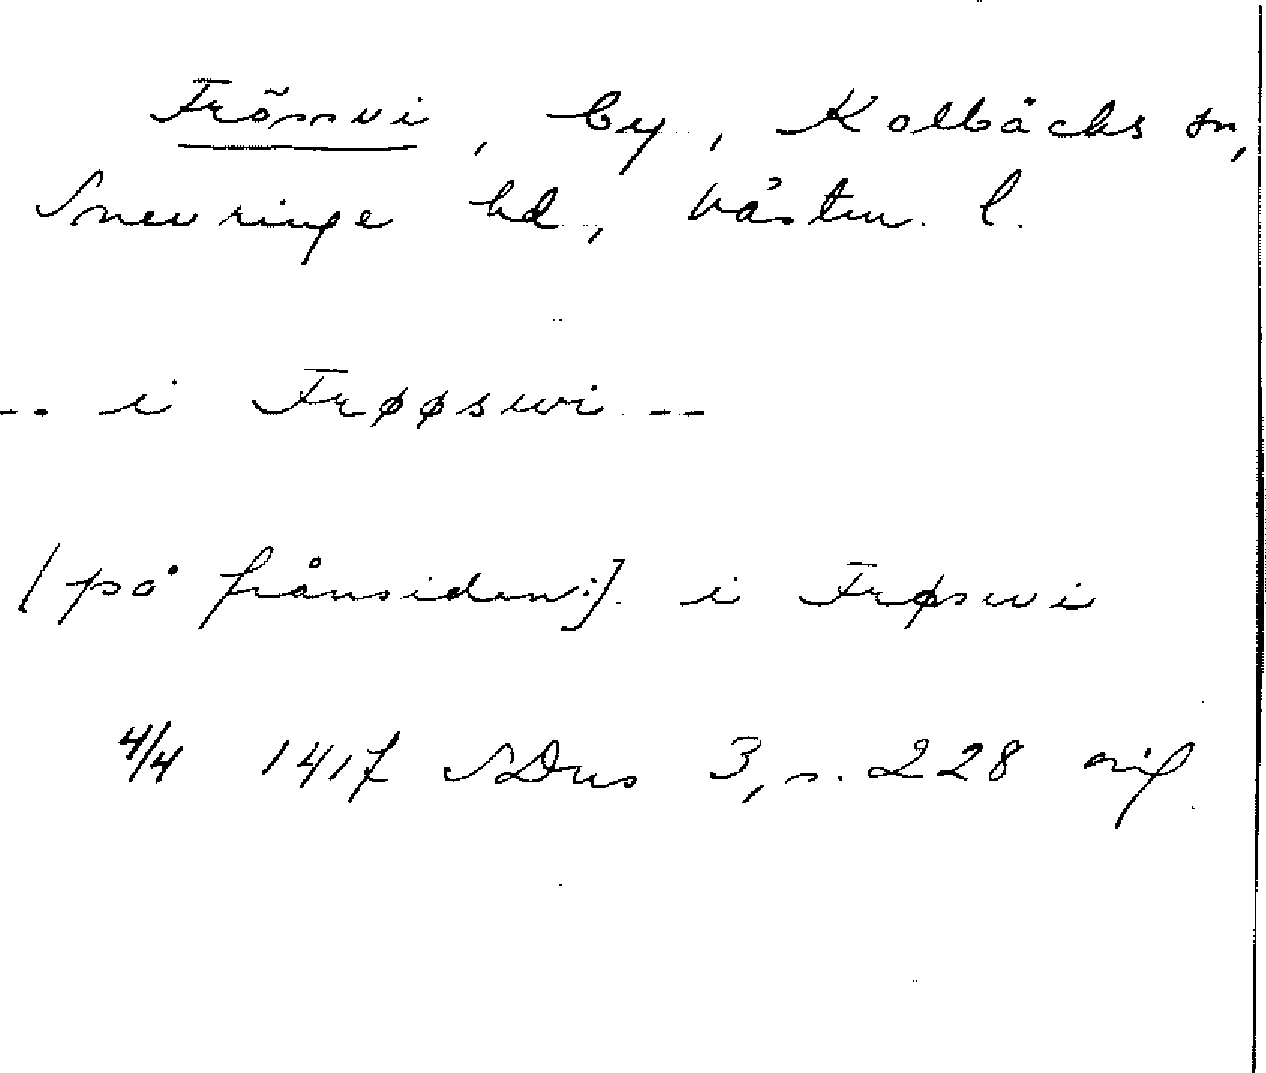 Frössvi, by, Kolbäcks sn,
Snevringe hd, Västm. l.
-- i Frøøswi --
[på frånsiden:] i Frøswi
4/4 1417 SDns 3, s. 228 orig